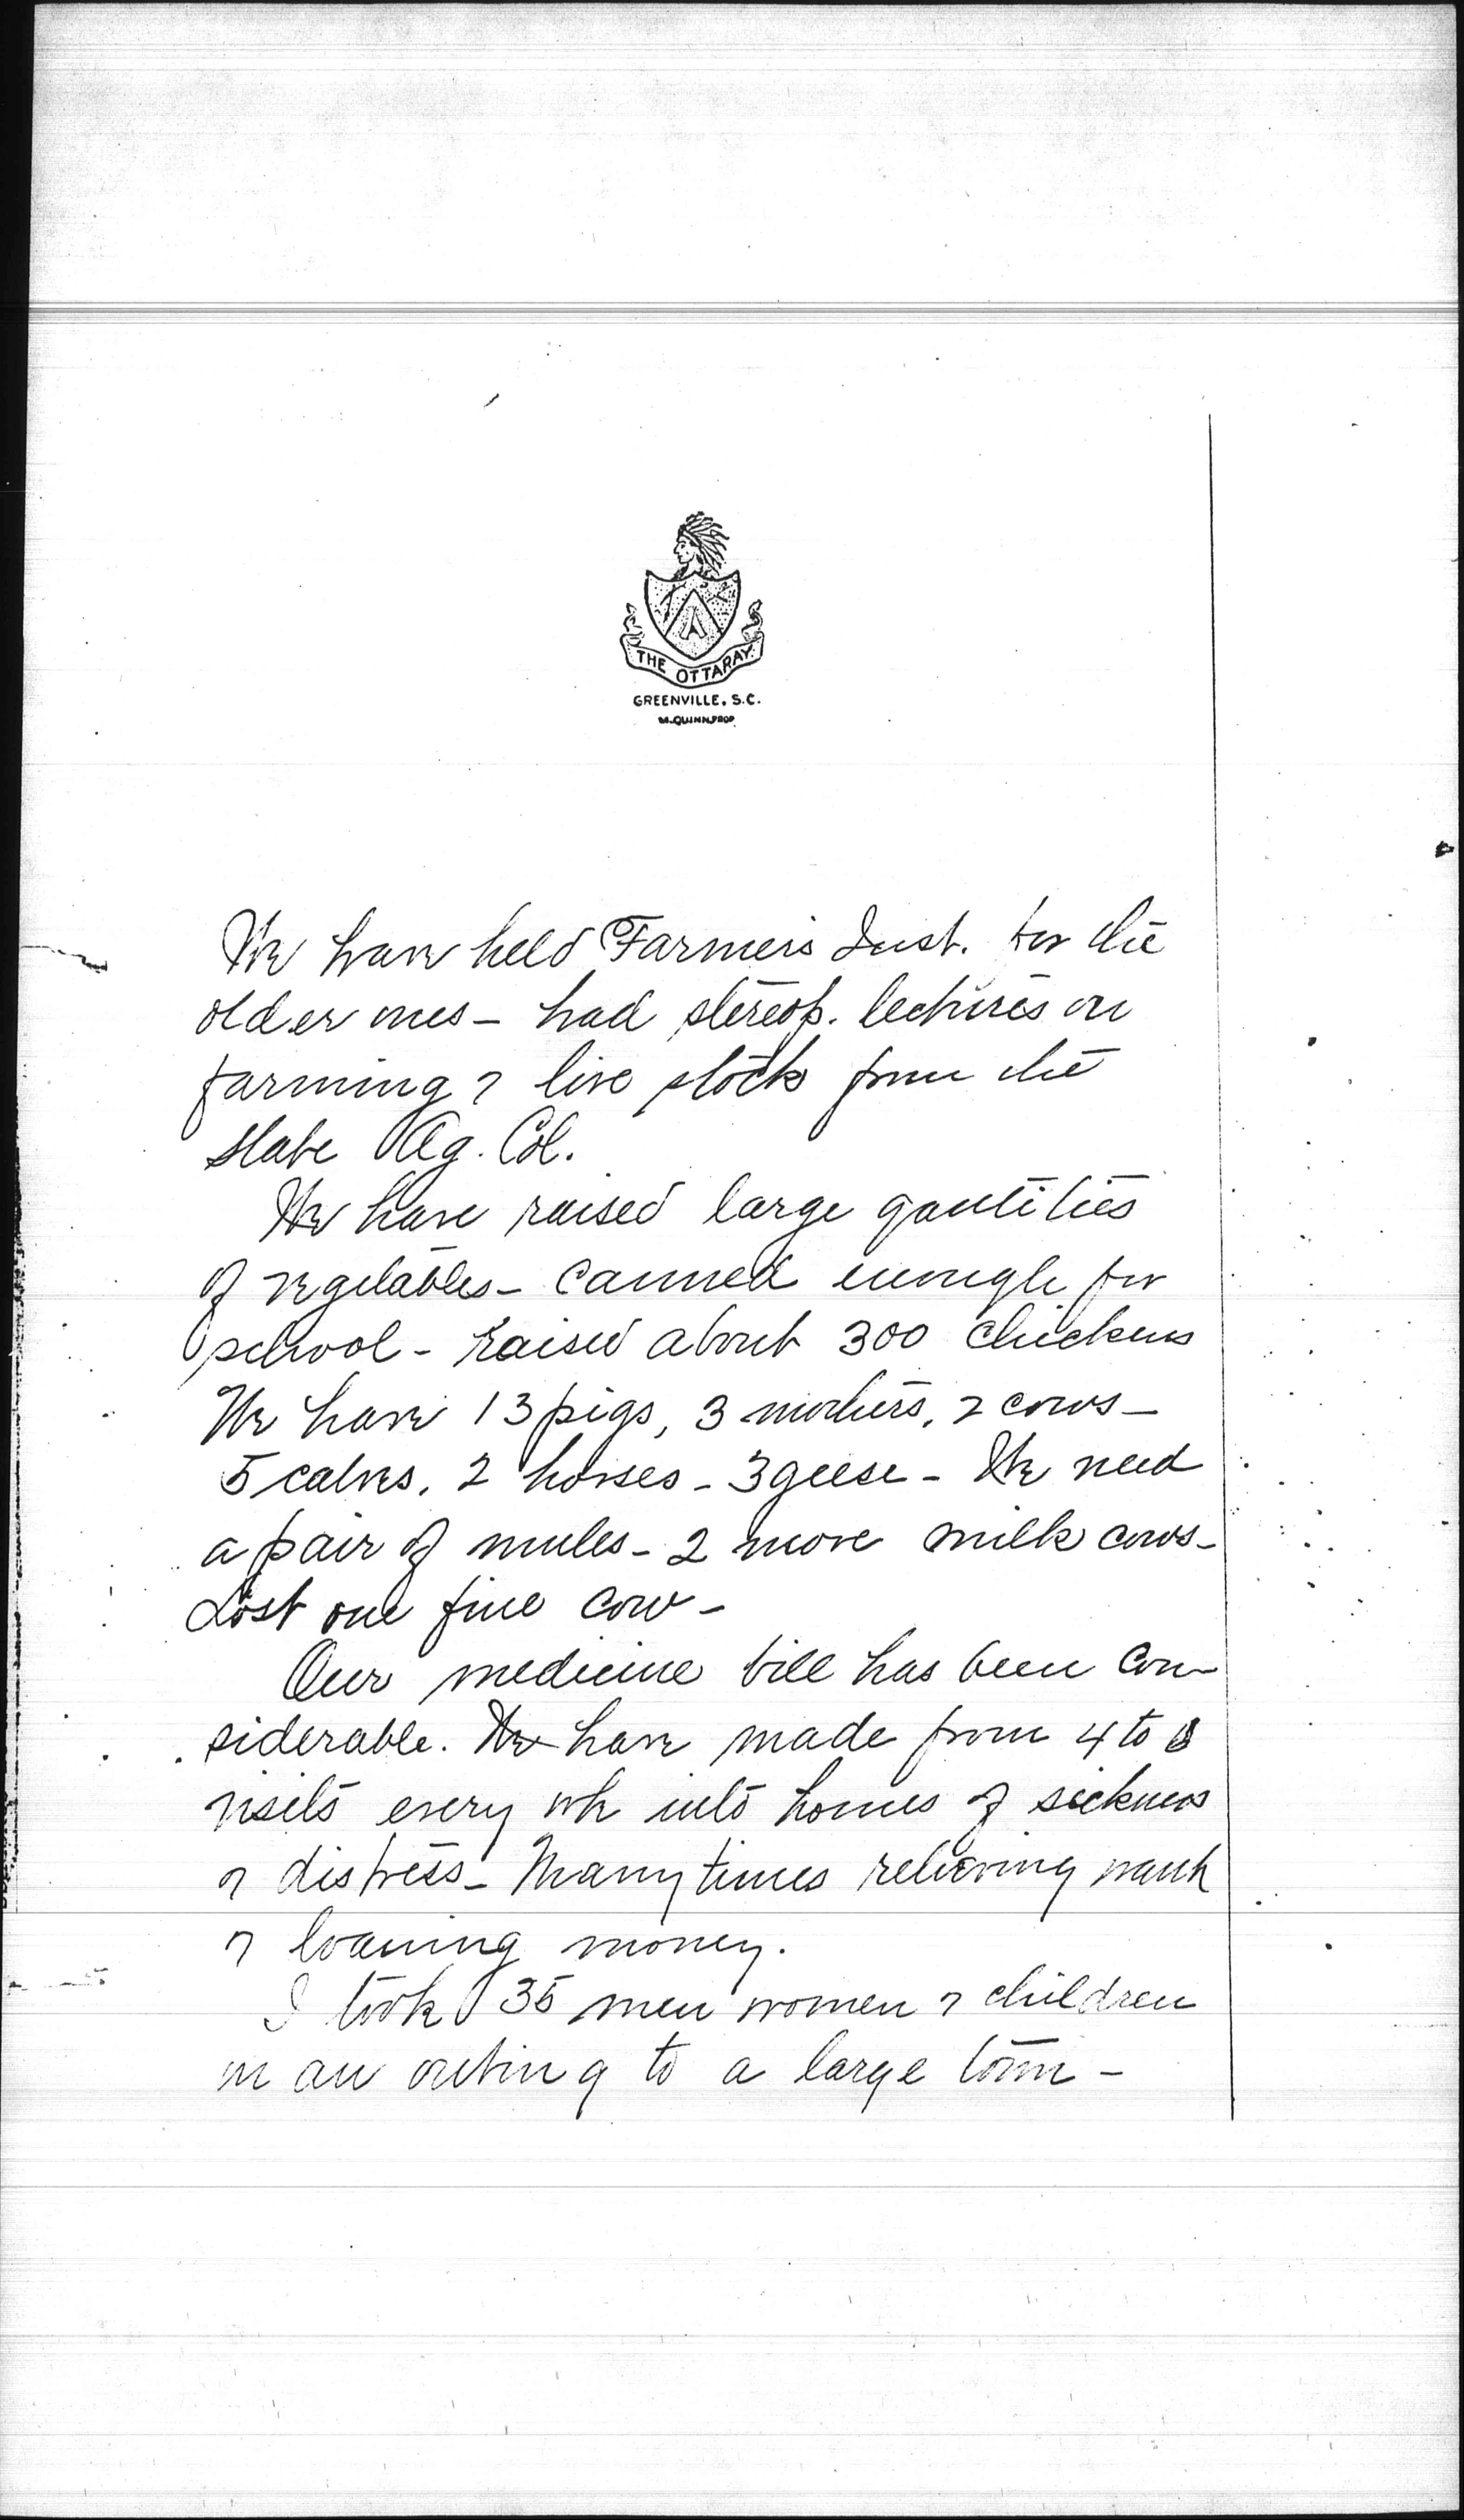 THE OTTARAY.
GREENVILLE, S.C.
M. QUINN, PROP.
We have held Farmers Inst. for the
older ones - had stereop. lectures on
farming & live stock from the
state Ag. Col.
We have raised large qantities
of vegetables - canned enough for
school - raised about 300 chickens
We have 13 pigs, 3 mothers, 2 cows -
5 calves, 2 horses - 3 geese - We need
a pair of mules - 2 more milk cows -
Lost one fine cow -
Our medicine bill has been con-
siderable. We have made from 4 to 8
visits every wk into homes of sickness
& distress - Many times relieving want
& loaning money.
I took 35 men women & children
on an outing to a large town -